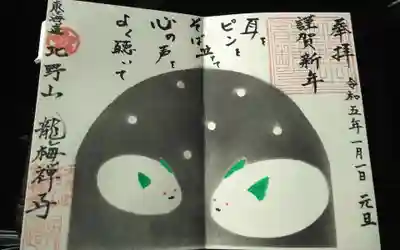 奉拝
謹賀新年
令和五年一月一日 元旦
耳を
ピンと
そば立て
心の声を
よく聴いて
東海道
北野山 龍梅禅寺